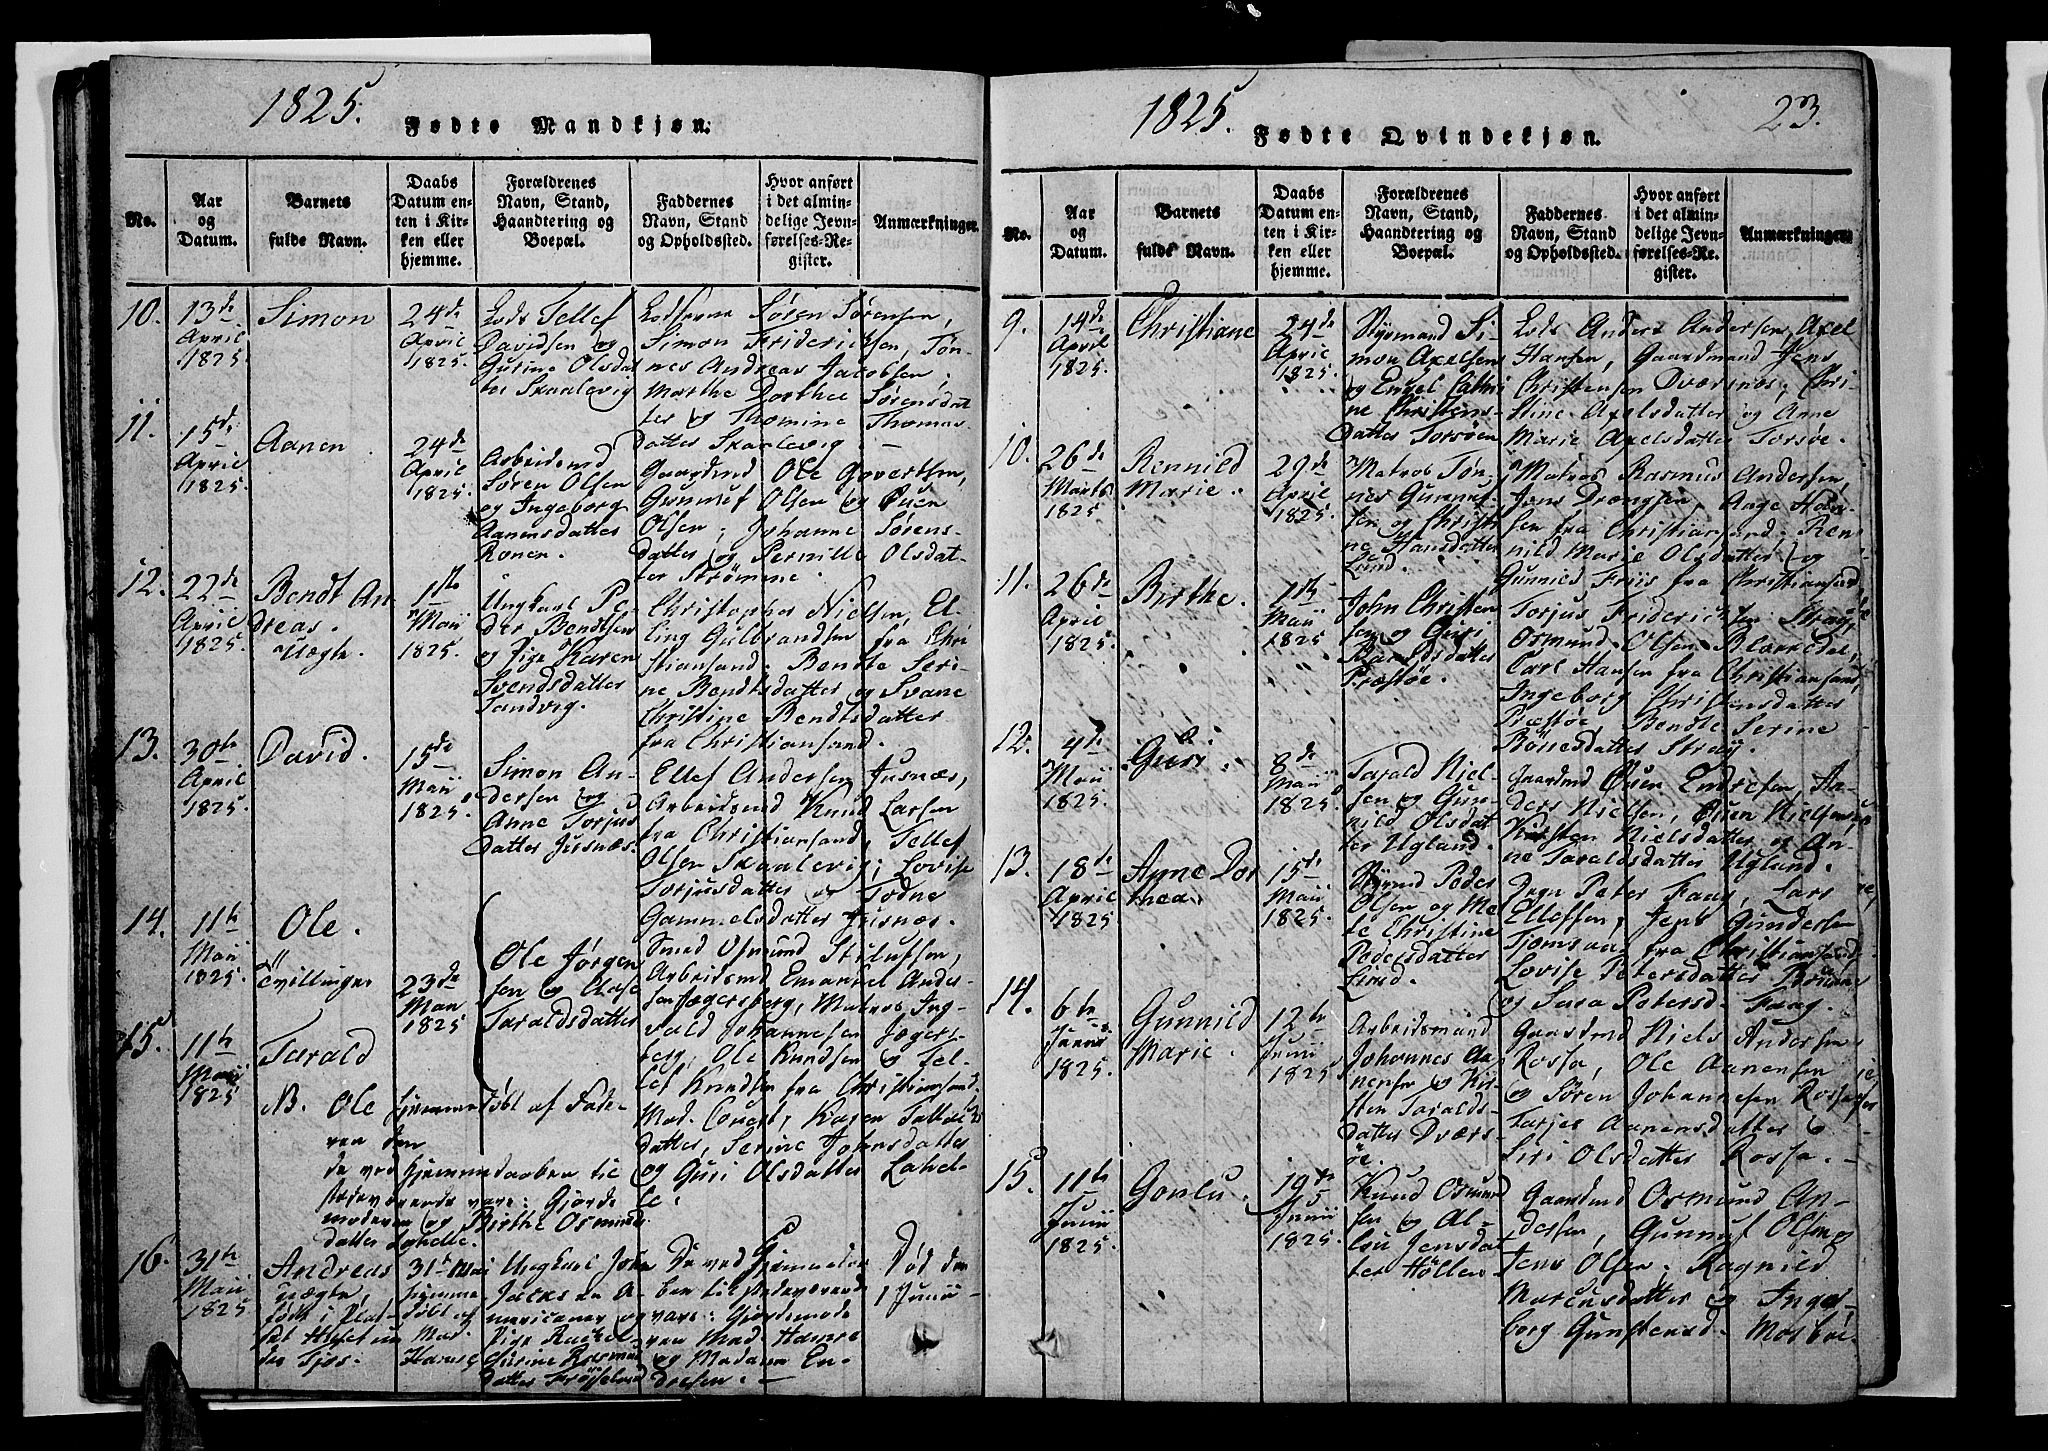 1825.
Fødte Mandkjøn.
No.
Aar
og
Datum.
Barnets
fulde Navn.
Daabs
Datum en-
ten i Kir-
ken eller
hjemme.
Forældrenes
Navn, Stand,
Haandtering og
Boepæl.
Faddernes
Navn, Stand
og Opholdssted.
Hvor anført
i det almin-
delige Jevn-
førelses-Re-
gister.
Anmærkninger
10.
13de
April
1825.
Simon
24de
April
1825.
Lods Tellef
Davidsen og
Gurine Olsdat-
ter Skaalevig
Lodserne Søren Sørensen,
Simon Friderichsen, Tøn-
nes Andreas Jacobsen.
Marthe Dorthee Sørensdat
ter og Thomine Thomas-
datter Skaalevig.
11.
15de
April
1825.
Aanen
24de
April
1825.
Arbeidsmd
Søren Olsen
og Ingeborg
Aanensdatter
Ronen.
Gaardmd Ole Govertsen,
Gunnuf Olsen og Ouen
Olsen; Johanne Sørens-
datter og Pernille Olsdat-
ter Strømme.
12.
22de
April
1825.
Bendt An
dreas.
Uægte.
1ste
Maii
1825.
Ungkarl Pe-
der Bendtsen
og Pige Karen
Svendsdatter
Sandvig.
Christopher Nielsen, El-
ling Gulbrandsen fra Chri
stiansand. Bendte Seri-
ne Bendtsdatter og Svane
Christine Bendtsdatter
fra Christiansand.
13.
30te
April
1825.
David.
15de
Maii
1825.
Simon An-
dersen og
Anne Torjus
datter Jusnæs.
Ellef Andersen Jusnæs,
Arbeidsmd Knud Larsen
fra Christiansand, Tellef
Olsen Skaalevig; Lovise
Torjusdatter og Todne
Gammelsdatter Jusnæs.
14.
11te
Maii
1825.
Ole.
Tvillinger
23de
Maii
1825
Ole Jørgen
sen og Aase
Taraldsdatter
Smed Osmund Stilufsen,
Arbeidsmd Emanuel Ander-
sen Jægersberg, Matros Ing-
vald Johannesen Jægers-
berg, Ole Knudsen og Tel-
lef Knudsen fra Christiansand.
Mad. Couert, Karen Tallaks
datter, Serine Johnsdatter
og Guri Olsdatter Lahel-
le.
15.
11te
Maii
1825
Tarald
NB. Ole hjemmedøbt af Fade-
ren den
de ved hjemmedaaben til
stedeværende vare: Gjorde
moderen og Birthe Osmund
datter Lahelle.
16.
31te
Maii
1825
Andreas
Uægte,
født i Plad-
set
Tjos.
31te Maii
hjemme
døbt af
Mad.
Hanse
Ungkarl John
Jackson A-
mericaner og
Pige Rachel
Surine Rasmus
datter
De ved Hjemmedaa
ben tilstedeværende
vare: Gjordemode
ren Mad. Hanse
og Madame En-
dresen.
Død den
1 Junii
1825.
23.
Fødte Qvindekjøn.
No.
Aar
og
Datum.
Barnets
fulde Navn.
Daabs
Datum en-
ten i Kir-
ken eller
hjemme.
Forældrenes
Navn, Stand,
Haandtering og
Boepæl.
Faddernes
Navn, Stand
og Opholdssted.
Hvor anført
i det almin-
delige Jevn-
førelses-Re-
gister.
Anmærkninger
9.
14de
April
1825.
Christiane
24de
April
1825.
Styrmand Si-
mon Axelsen
og Engel Cathri
ne Christens-
datter Torsøen
Lods Anders Andersen, Axel
Hansen, Gaardmand Jens
Christensen Dværsnæs; Chri-
stine Axelsdatter og Anne
Marie Axelsdatter Torsøe.
10.
26de
Marts
1825.
Rennild
Marie.
29de
April
1825.
Matros Tøn-
nes Gunnuf-
sen og Christi
ne Hansdatter
Lund.
Matros Rasmus Andersen,
Jens Drengsen, Aage Han-
sen fra Christiansand. Ren-
nild Marie Olsdatter og
Gunnild Friis fra Christiansand
11.
26de
April
1825.
Birthe.
1ste
Maii
1825
John Christen
sen og Guri
Baroldsdatter
Præstøe.
Torjus Friderichsen Straÿ,
Osmund Olsen Blørredal,
Carl Hansen fra Christiansand,
Ingeborg Christensdatter
Præstøe Bendte Serine
Rønesdatter Straÿ.
12.
4de
Maii
1825.
Guri.
8de
Maii
1825.
Tarald Niel-
sen og Gun-
nild Olsdat
ter Ugland.
Gaardmd Ouen Endresen, An-
ders Nielsen, Ouen Nielsen,
Kirsten Nielsdatter og An-
ne Taraldsdatter Ugland.
13.
18de
April
1825.
Anne Dor
thea.
15de
Maii
1825.
Styrmd Peder
Olsen og Me-
te Christine
Pedersdatter
Lund.
Jegn Peter Faag, Lars
Ellefsen, Jens Gundersen
Tjomsaas fra Christiansand,
Lovise Petersdatter
og Sara Petersd. Faag.
14.
6te
Junii
1825.
Gunnild
Marie.
12te
Junii
1825
Arbeidsmand
Johannes Aa-
nensen og Kir-
sten Taralds-
datter Dværs-
øe.
Gaardmd Niels Andersen
Rossø, Ole Aanensen
og Søren Johannesen Rossø
Tarjer Aanensdatter &
Siri Olsdatter Rossø.
15.
11te
Junii
1825.
Gonlu.
19de
Junii
1825.
Knud Osmund
sen og Al-
lou Jensdat
ter Høllen
Gaardmd Osmund An-
dersen, Gunnuf Olsen og
Jens Olsen. Ragnild
Marcusdatter og Inge-
borg Gunstensd. Mosbøe.